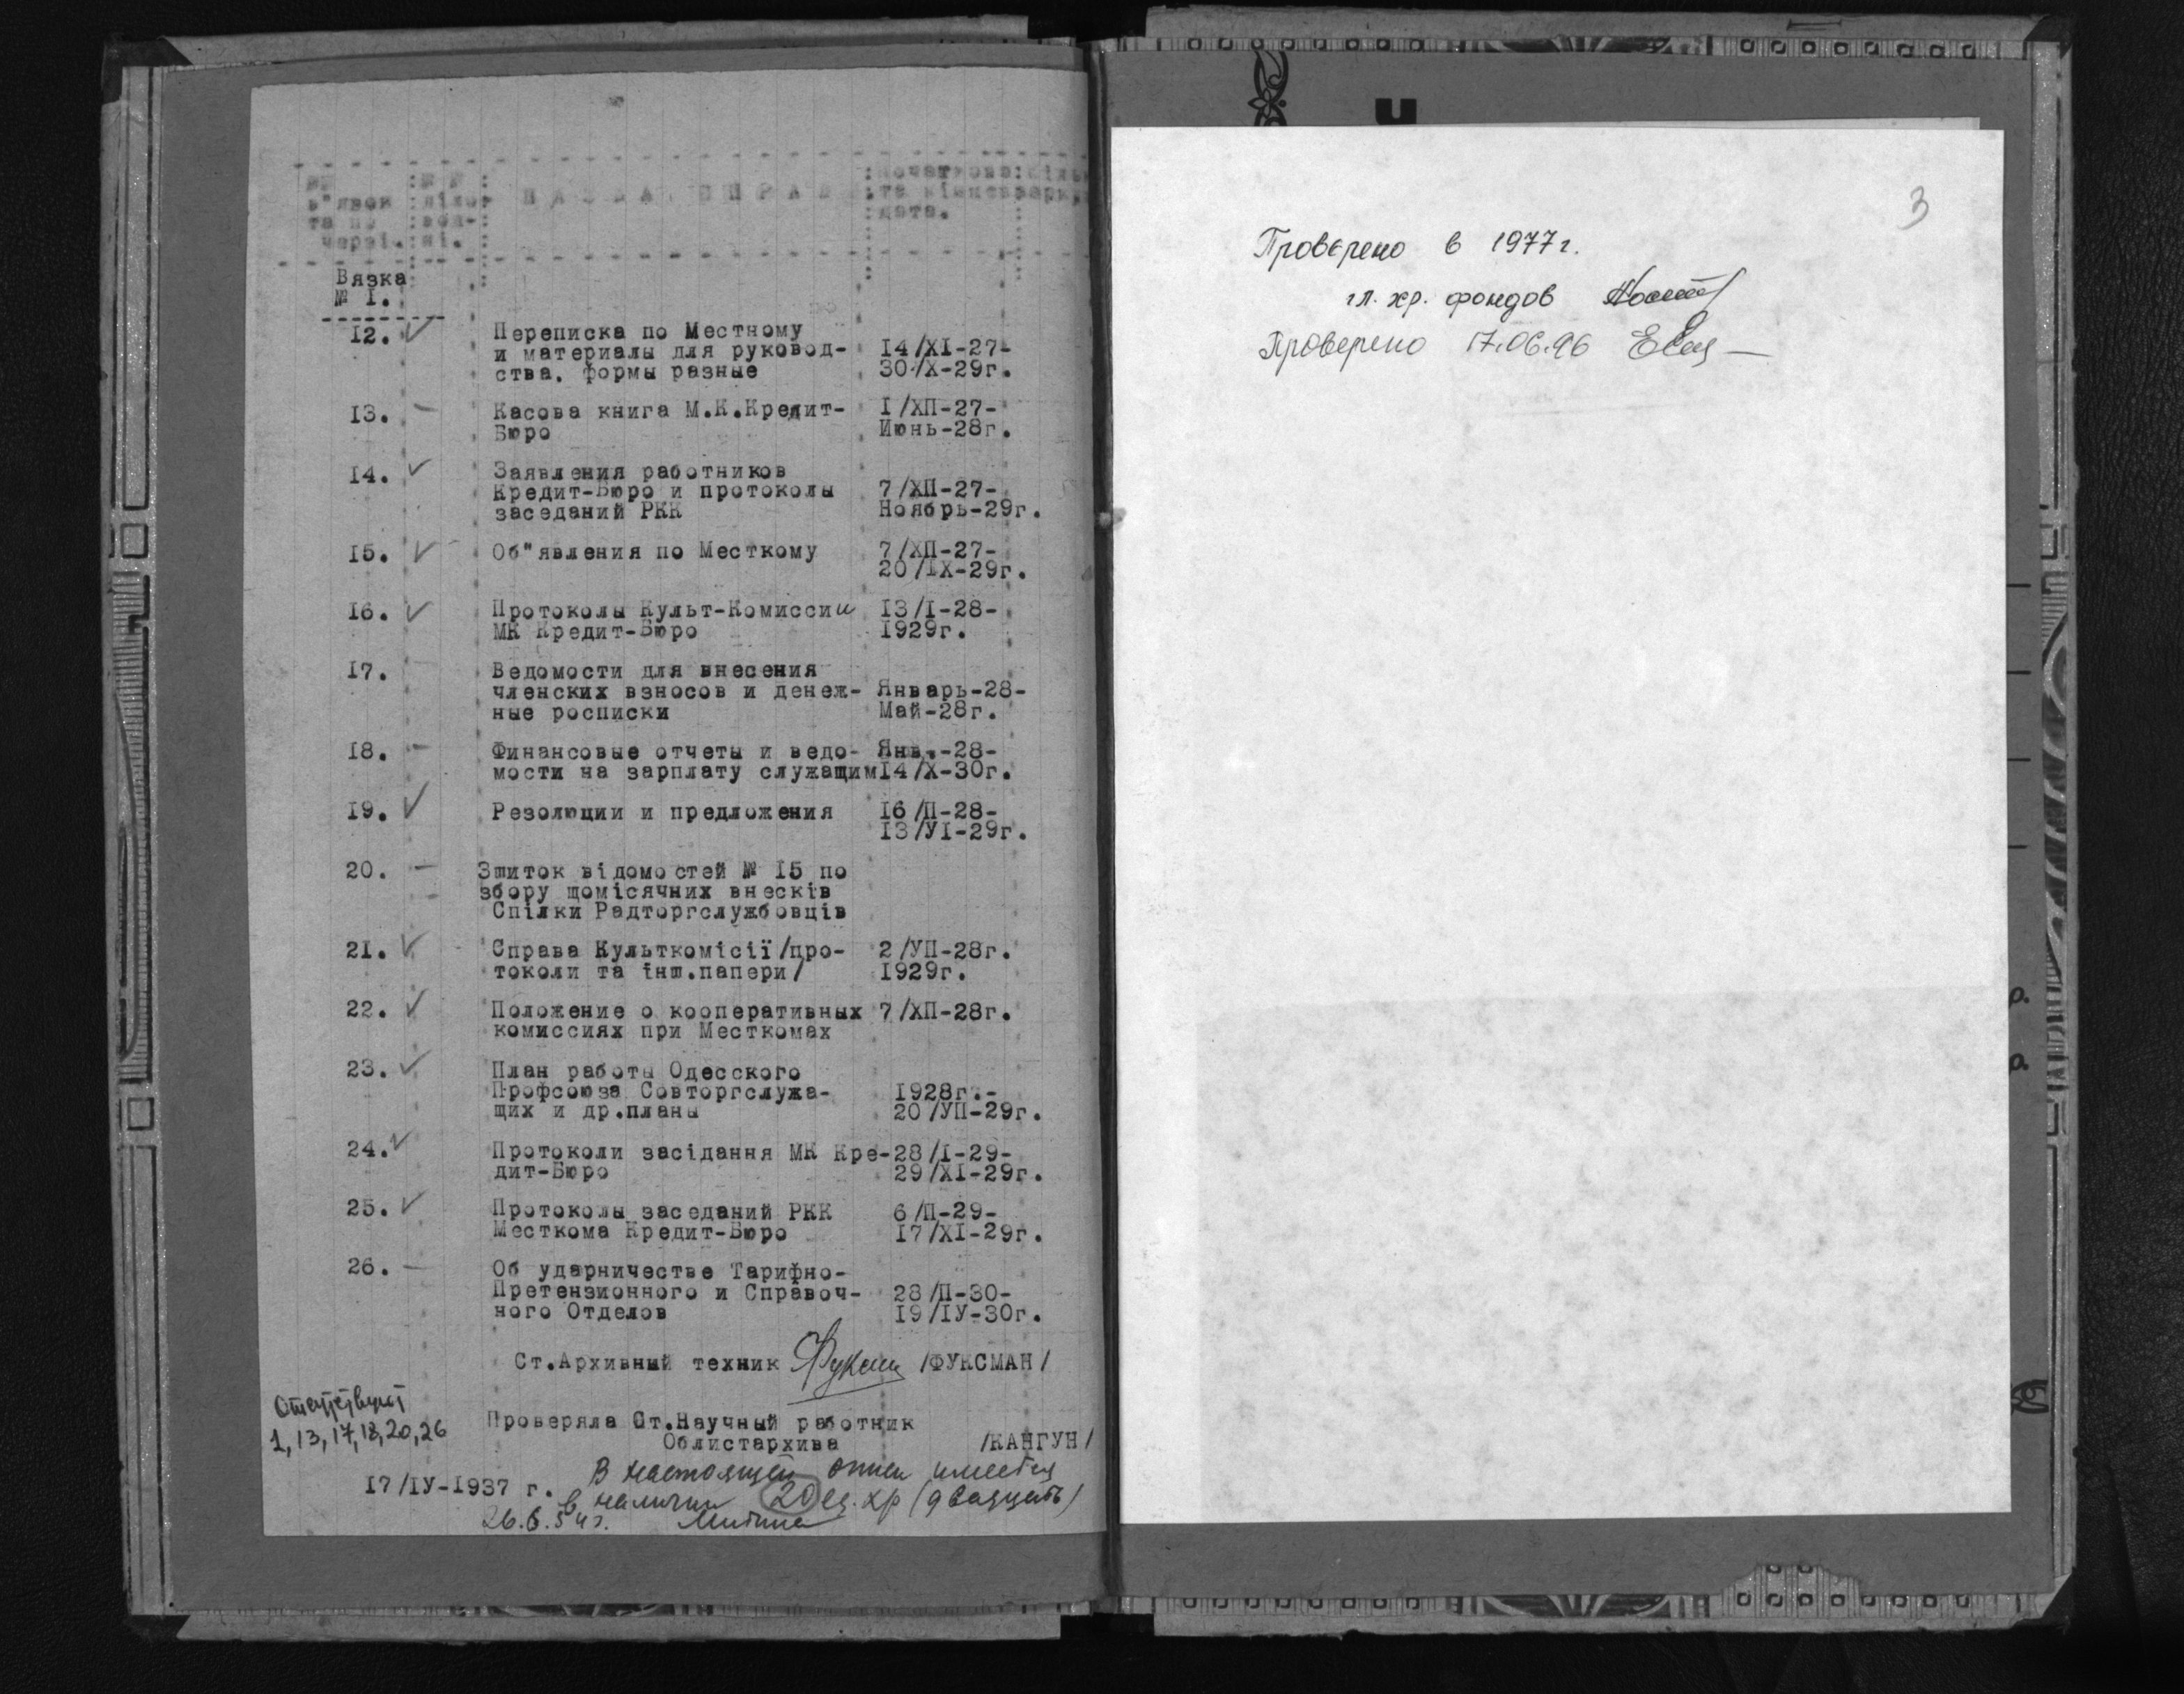 №№ :№ № : НАЗВА СПРАВ :початкова:кіль
в"язок :діло- та кінцева арк.
та по :вод- :дата.
черзі.:ні.
Вязка
№ I.
I2. ✓ Переписка по Местному
и материалы для руковод- I4/XI-27-
ства. формы разные 30/X-29г.
I3. - Касова книга М.К.Кредит- I/ХП-27-
Бюро Июнь-28г.
I4. ✓ Заявления работников
Кредит-Бюро и протоколы 7/ХП-27-
заседаний РКК Ноябрь-29г.
I5. ✓ Об"явления по Месткому 7/ХП-27-
20/IX-29г.
I6. ✓ Протоколы Культ-Комиссии I3/I-28-
МК Кредит-Бюро I929г.
I7. - Ведомости для внесения
членских взносов и денеж- Январь-28-
ные росписки Май-28г.
I8. - Финансовые отчеты и ведо- Янв.-28-
мости на зарплату служащим I4/X-30г.
I9. ✓ Резолюции и предложения I6/П-28-
I3/УI-29г.
20. - Зшиток відомостей № I5 по
збору щомісячних внесків
Спілки Радторгслужбовців
21. ✓ Справа Культкомісії/про- 2/УП-28г.
токоли та інш.папери/ I929г.
22. ✓ Положение о кооперативных 7/ХП-28г.
комиссиях при Месткомах
23. ✓ План работы Одесского
Профсоюза Совторгслужа- I928г.-
щих и др.планы 20/УП-29г.
24. ✓ Протоколи засідання МК Кре- 28/I-29-
дит-Бюро 29/XI-29г.
25. ✓ Протоколы заседаний РКК 6/П-29-
Месткома Кредит-Бюро I7/XI-29г.
26. - Об ударничестве Тарифно-
Претензионного и Справоч- 28/П-30-
ного Отделов I9/IУ-30г.
Ст.Архивный техник /ФУКСМАН/
Отсутствуют
1, 13, 17, 18, 20, 26
Проверяла Ст.Научный работник
Облистархива /КАНГУН/
I7/IУ-I937 г.
В настоящей описи имеется
в наличии 20 ед. хр (двадцать)
26.6.54г.
3
Проверено в 1977г.
гл. хр. фондов
Проверено 17.06.96